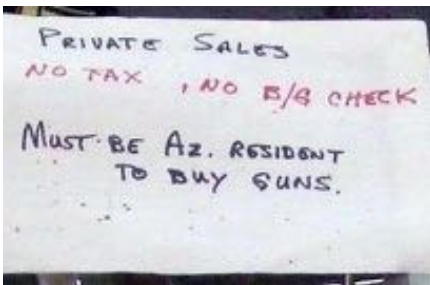 PRIVATE SALES
NO TAX , NO B/G CHECK
MUST BE AZ. RESIDENT
TO BUY GUNS.